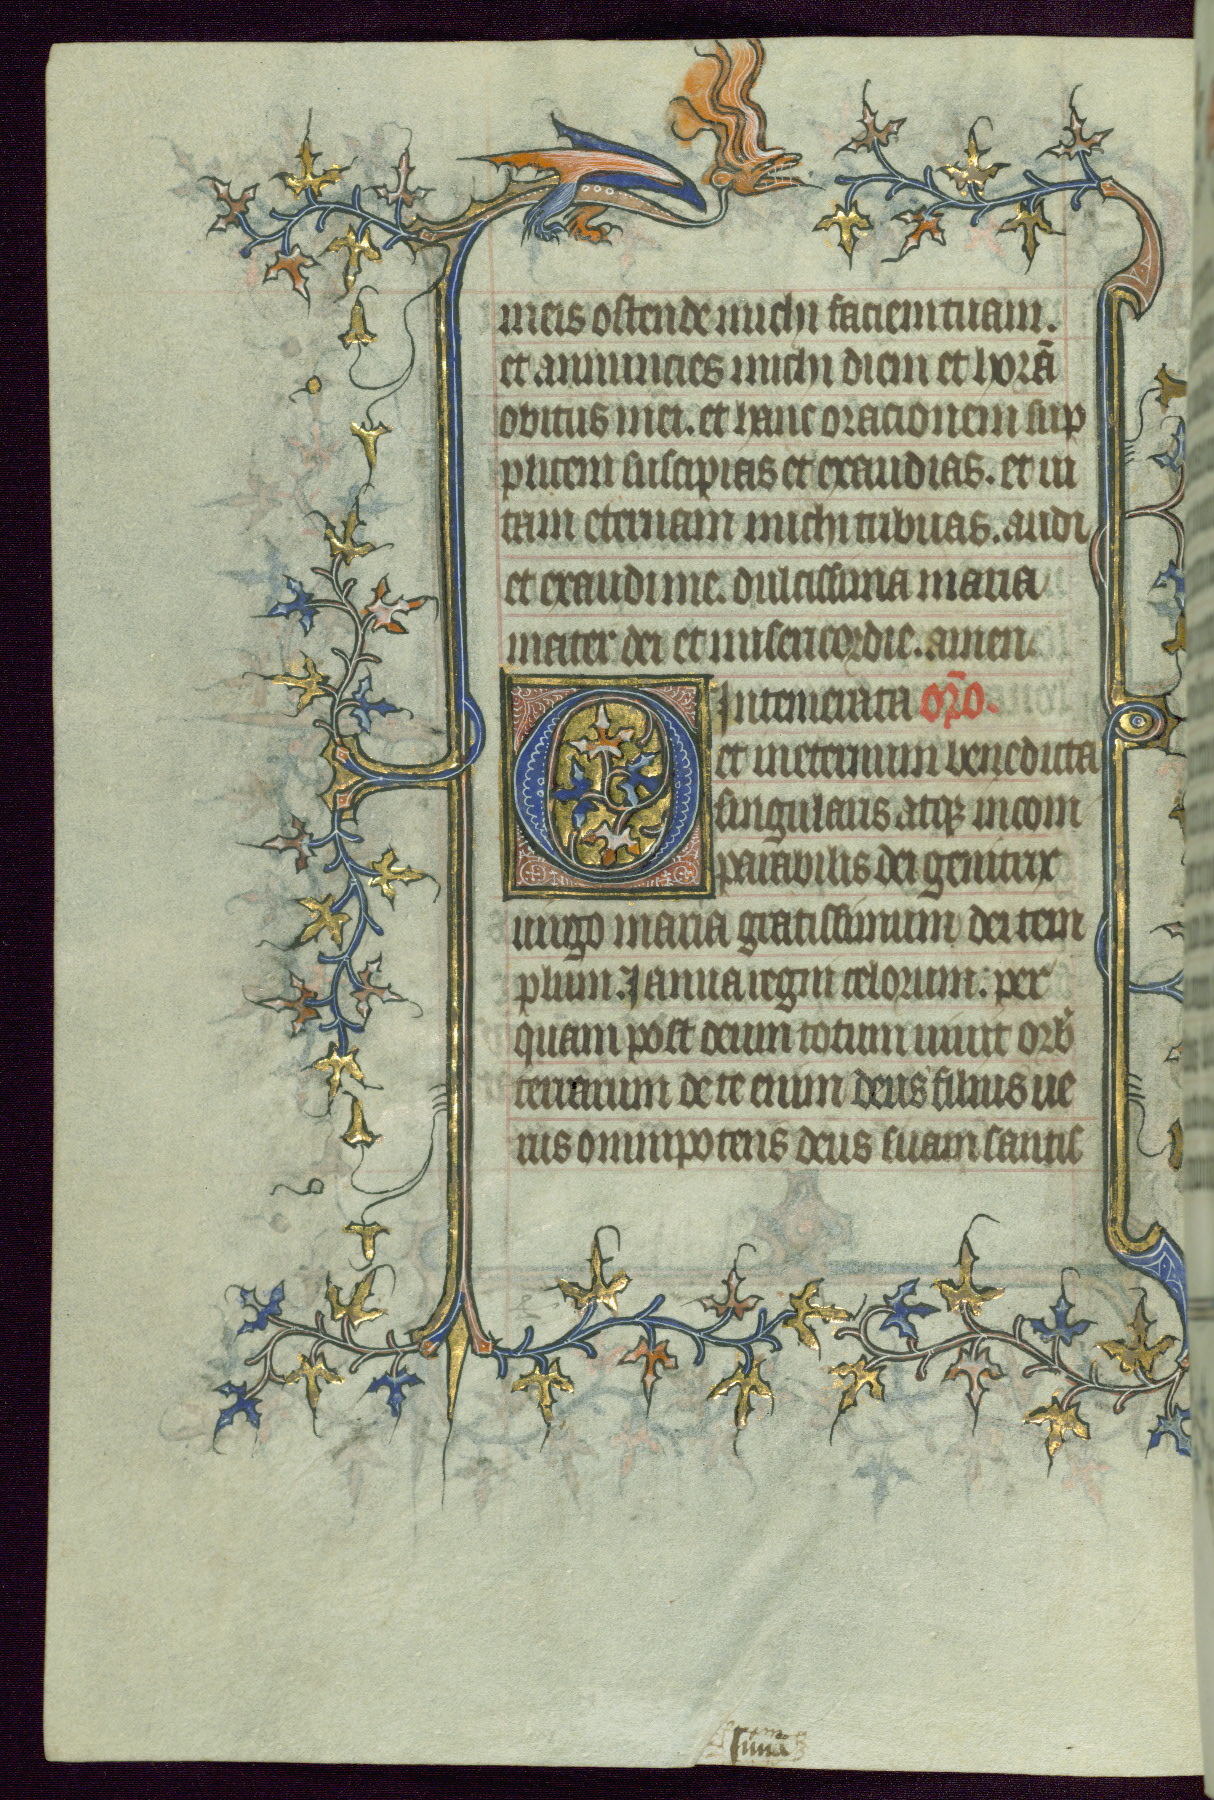 meis ostende michi faciem tuam.
et annuncies michi diem et horā
obitus mei. et hanc orationem sup
plicem suscipias et exaudias. et ui
tam eternam michi tribuas. audi
et exaudi me. dulcissima maria
mater dei et misericordie. amen
O Intemerata orō.
et ineternum benedicta
singularis atqꝫ incom
parabilis dei genitrix
uirgo maria gratissimum dei tem
plum. Janua regni celorum: per
quam post deum totum uiuit orbꝭ
terrarum de te enim deus filius ue
rus omnipotens deus suam sanctis